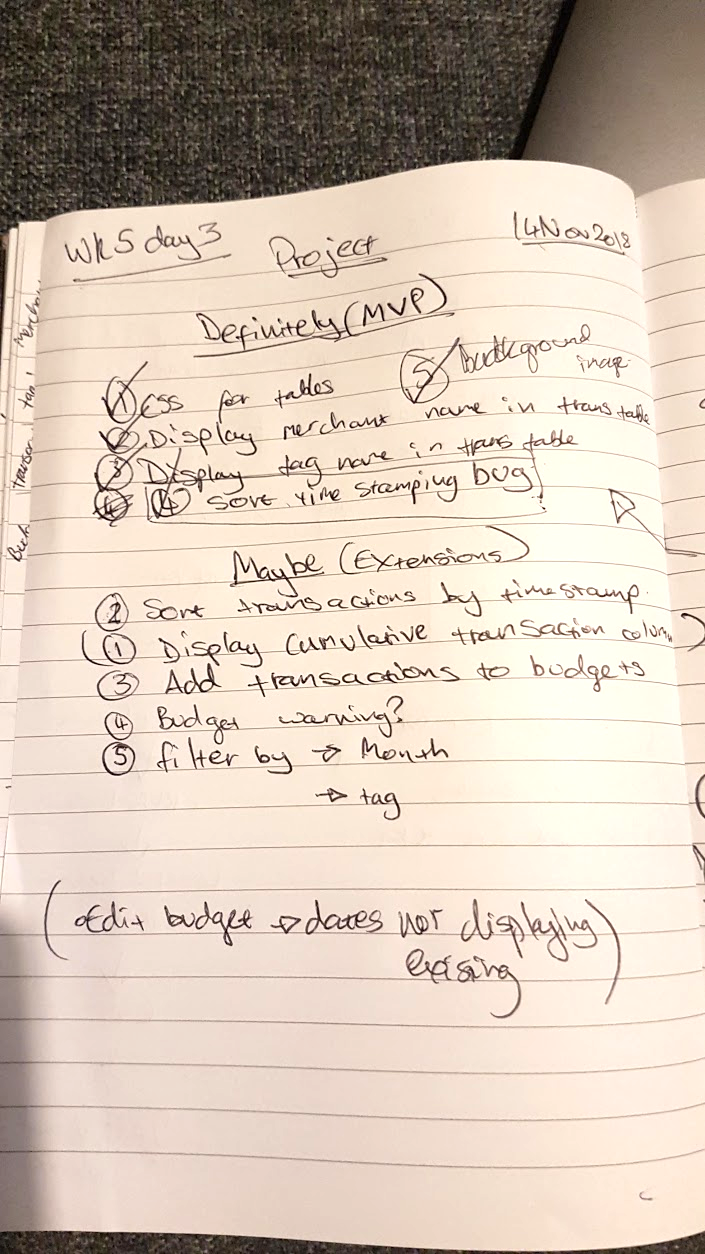 Wk 5 day 3
Project
14 Nov 2018
Definitely (MVP)
5 Background
image
1 CSS for tables
2 Display merchant name in trans table
3 Display tag name in trans table
4 4 Sort time stamping bug
Maybe (Extensions)
2 Sort transactions by timestamp.
(1 Display Cumulative transaction column)
3 Add transactions to budgets
4 Budget warning?
5 filter by → Month
→ tag
(Edit budget → dates not displaying
exising)